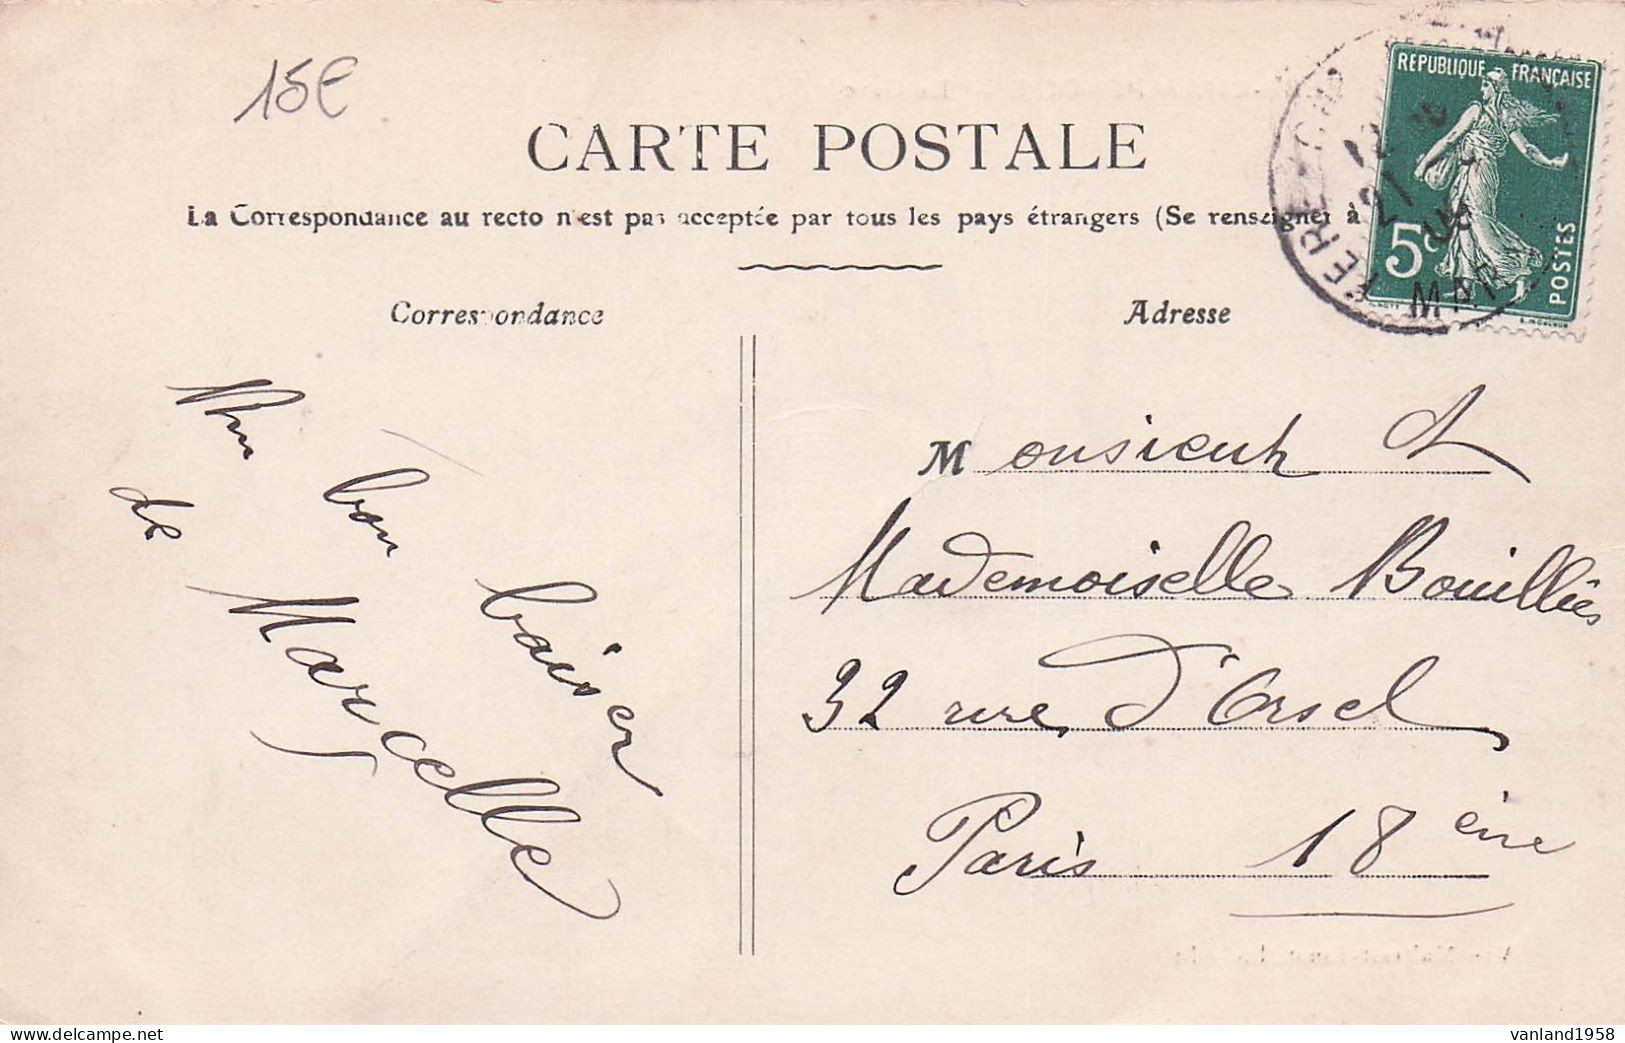 15€
CARTE POSTALE
La Correspondance au recto n'est pas acceptée par tous les pays étrangers (Se renseigner à
REPUBLIQUE FRANÇAISE
5c
POSTES
FÈRE-CHAMP
21
MARNE
Correspondance
Adresse
Un bon baiser
de Marcelle
Monsieur et
Mademoiselle Bouilliès
32 rue d'Orsel
Paris 18ème
www.delcampe.net
vanland1958